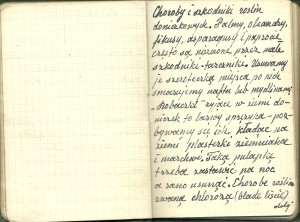 Choroby i szkodniki roślin
doniczkowych. Palmy, oleandry,
fikusy, asparagusy i paprocie
często są niszczone przez małe
szkodniki-tarczniki. Usuwamy
je szczoteczką miejsca po nich
smarujemy naftą lub mydlinami.
"Robaczki" żyjące w ziemi do-
niczek to larwy sprężyka - poz-
bywamy się ich, kładąc na
ziemi plasterki ziemniaka
i marchwi. Taką pułapkę
trzeba zastawić na noc
a rano usunąć. Chorobę roślin
zwaną chlorozą (blade liście)